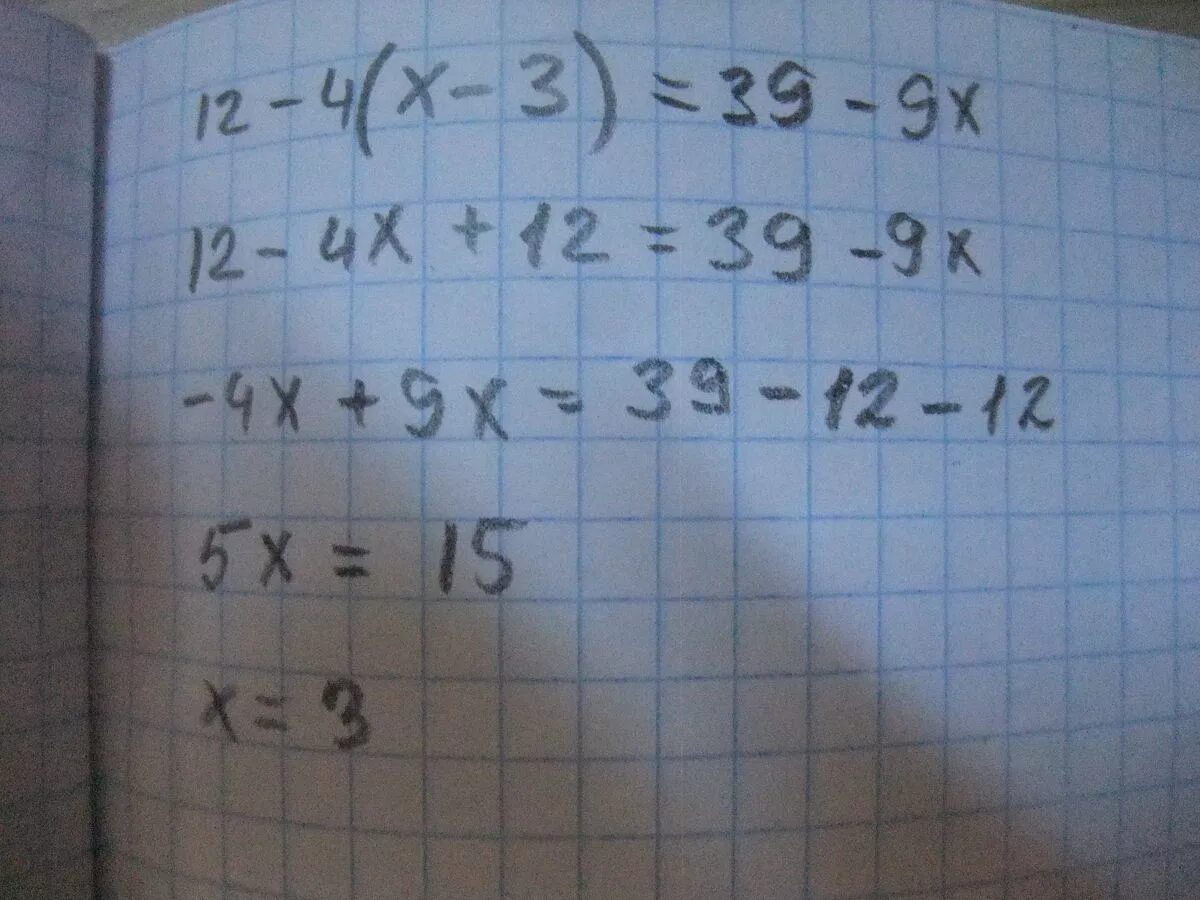 12 - 4(x - 3) = 39 - 9x
12 - 4x + 12 = 39 - 9x
-4x + 9x = 39 - 12 - 12
5x = 15
x = 3